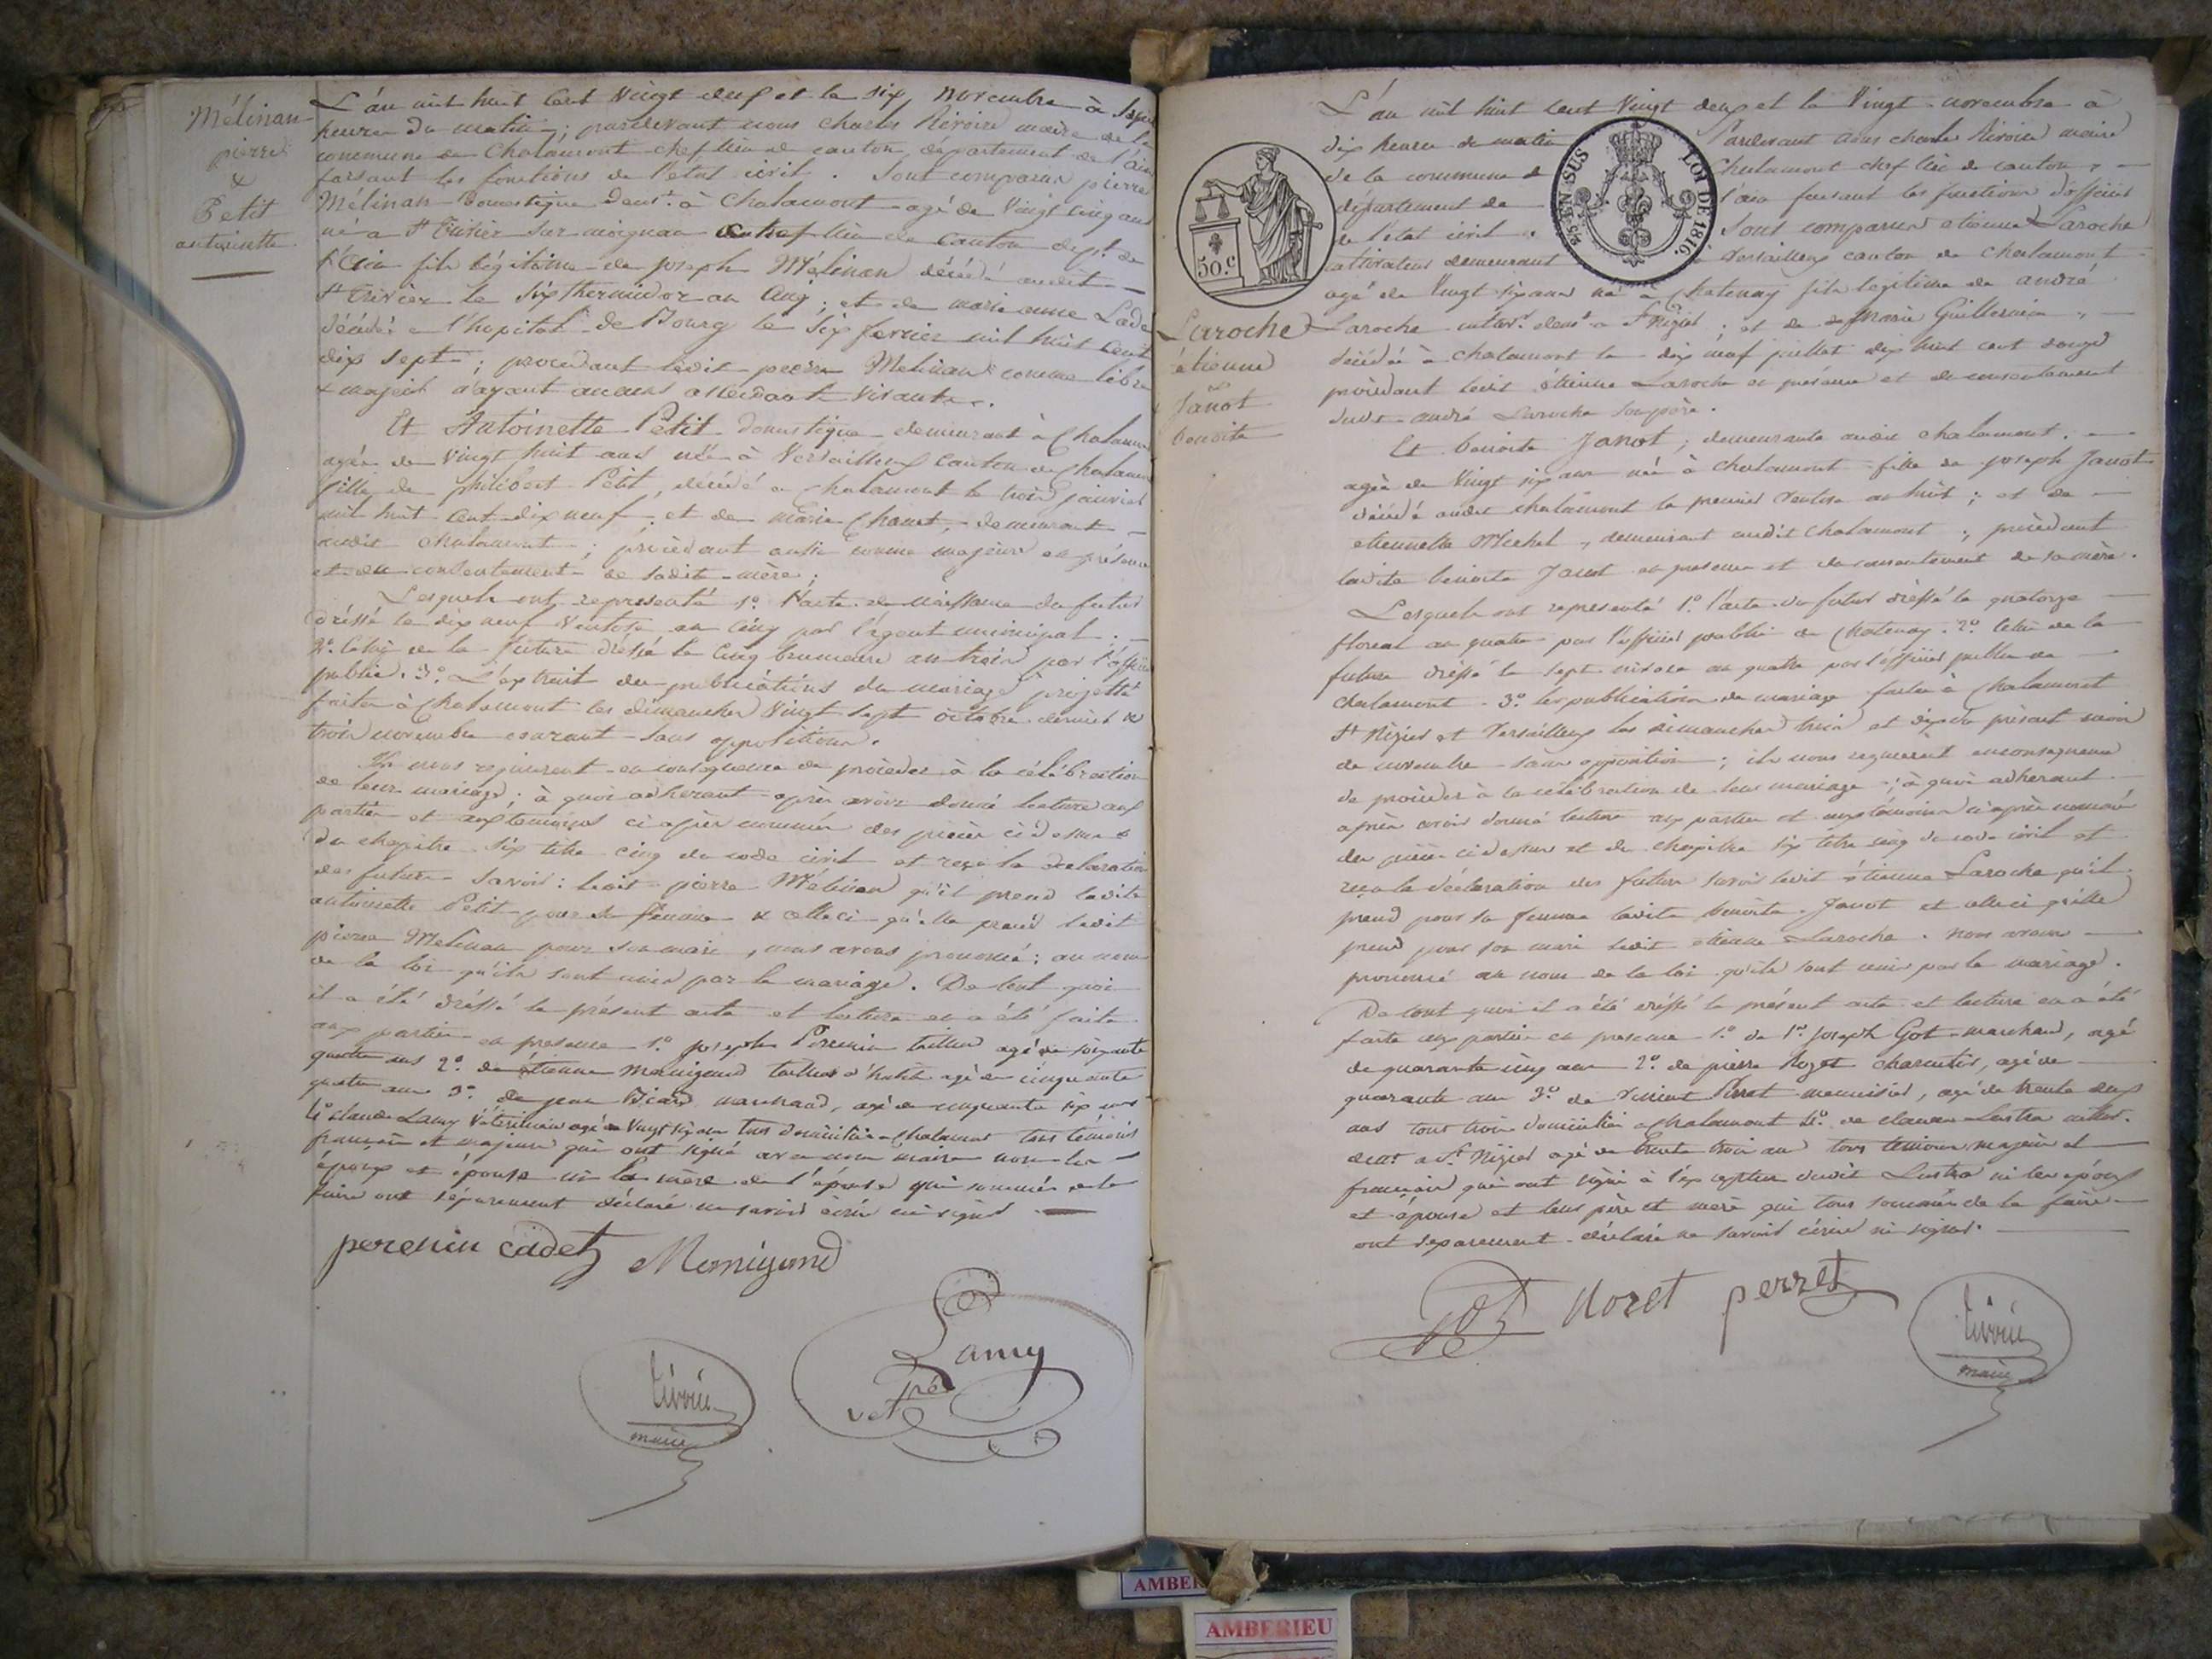 Mélinan
pierre
&
Petit
antoinette
L'an mil huit cent vingt deux et le six novembre à sept
heures du matin; pardevant nous Charles Rivoire maire de la
commune de Chalamont chef lieu de canton département de l'ain
faisant les fonctions de l'état civil. Sont comparus pierre
Mélinan Domestique demt. à Chalamont agé de vingt cinq ans
né a St Trivier sur moignan chef lieu de canton dept. de
l'Ain fils légitime de joseph Mélinan décédé audit
St Trivier le six thermidor an cinq; et de marie anne
décédée a l'hopital de Bourg le six fevrier mil huit cent
dix sept; procédant ledit pierre Melinan comme libre
& majeur n'ayant aucuns ascendants vivants.
Et Antoinette Petit domestique demeurant à Chalamont
agée de vingt huit ans née à Versailleux canton de Chalamont
fille de philibert Petit, décédé a Chalamont le trois janvier
mil huit cent dix neuf; et de Marie Chanet, demeurant
audit Chalamont; procédant aussi comme majeure en présence
et du consentement de sadite mère;
Lesquels ont représenté 1º. l'acte de naissance du futur
dréssé le dix neuf ventose an cinq par l'agent municipal;
2º. Celui de la future dréssé le cinq brumaire an trois par l'officier
public. 3º. L'extrait des publications du mariage projetté
faites à Chalamont les dimanches vingt sept octobre dernier &
trois novembre courant sans opposition.
Ils nous requierent en conséquence de procéder à la célébration
de leur mariage; à quoi adhérant après avoir donné lecture aux
parties et aux témoins ci après nommés des pièces ci dessus &
du chapitre six titre cinq du code civil et reçu la déclaration
des futurs savoir: ledit pierre Mélinan qu'il prend ladite
antoinette Petit pour sa femme & celle ci qu'elle prend ledit
pierre Melinan pour son mari, nous avons prononcé; au nom
de la loi qu'ils sont unis par le mariage. De tout quoi
il a été dréssé le présent acte et lecture en a été faite
aux parties en presence 1º. joseph Perenin tailleur agé de soixante
quatre ans 2º. de étienne Momigond tailleur d'habits agé de cinquante
quatre ans 3º. de jean marchand, agé de cinquante six ans
4º claude Lamy Vétérinaire agé de vingt six ans tous domiciliés a Chalamont tous temoins
français et majeurs qui ont signé avec nous maire non les
époux et épouse ni la mère de l'épouse qui sommés de le
faire ont séparément déclaré ne savoir écrire ni signer
perenin cadet Momigond
Lamy
vet
Rivoire
maire
L'an mil huit cent vingt deux et le vingt novembre à
dix heures du matin Pardevant nous charles Rivoire maire
de la commune de Chalamont chef lieu de canton,
département de l'ain faisant les fonctions d'officier
de l'état civil. Sont comparus etienne Laroche
cultivateur demeurant a Versailleux canton de Chalamont
agé de vingt six ans né à Chatenay fils légitime de andré
Laroche cultivr. demt a St Nizier; et de marie Guillermin,
décédée à chalamont le dix neuf juillet dix huit cent douze
procédant ledit étienne Laroche en présence et du consentement
dudit andré Laroche son père.
50.C
2/5 EN SUS
LOI DE 1816.
Laroche
étienne
&
Janot
benoite
Et benoite Janot; demeurante audit chalamont.
agée de vingt six ans née à chalamont fille de joseph Janot
décédé audit chalamont le premier ventose an huit; et de
etiennette Michel, demeurant audit Chalamont; procédant
ladite benoite Janot en presence et du consentement de sa mère.
Lesquels ont représenté 1º. l'acte du futur dréssé le quatorze
floreal an quatre par l'officier public de Chatenay. 2º. Celui de la
future dréssé le sept nivose an quatre par l'officier public de
Chalamont. 3º. les publications de mariage faites à Chalamont
St Nizier et Versailleux les dimanches trois et dix du présent mois
de novembre sans opposition; ils nous requierent en conséquence
de procéder à la célébration de leur mariage; à quoi adhérant
après avoir donné lecture aux parties et aux témoins ci après nommés
des pièces ci dessus et du chapitre six titre cinq du code civil et
reçu la déclaration des futurs savoir ledit étienne Laroche qu'il
prend pour sa femme ladite benoite Janot et celle ci qu'elle
prend pour son mari ledit etienne Laroche. nous avons
prononcé au nom de la loi qu'ils sont unis par le mariage.
De tout quoi il a été dréssé le présent acte et lecture en a été
faite aux parties en presence 1º. de Sr. joseph Got marchand, agé
de quarante cinq ans 2º. de pierre Noret charcutier, agé de
quarante ans 3º. de Perret menuisier, agé de trente deux
ans tous trois domiciliés a Chalamont 4º. de claude Lustra cultivr.
demt a St Nizier agé de trente trois ans tous témoins majeurs et
français qui ont signé à l'exception dudit Lustra ni les époux
et épouse et leurs père et mere qui tous sommés de le faire
ont séparément déclaré ne savoir écrire ni signer.
Got Noret perret
Rivoire
maire
AMBERIEU